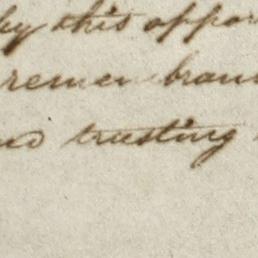 by this oppor
remen bran
and trusting